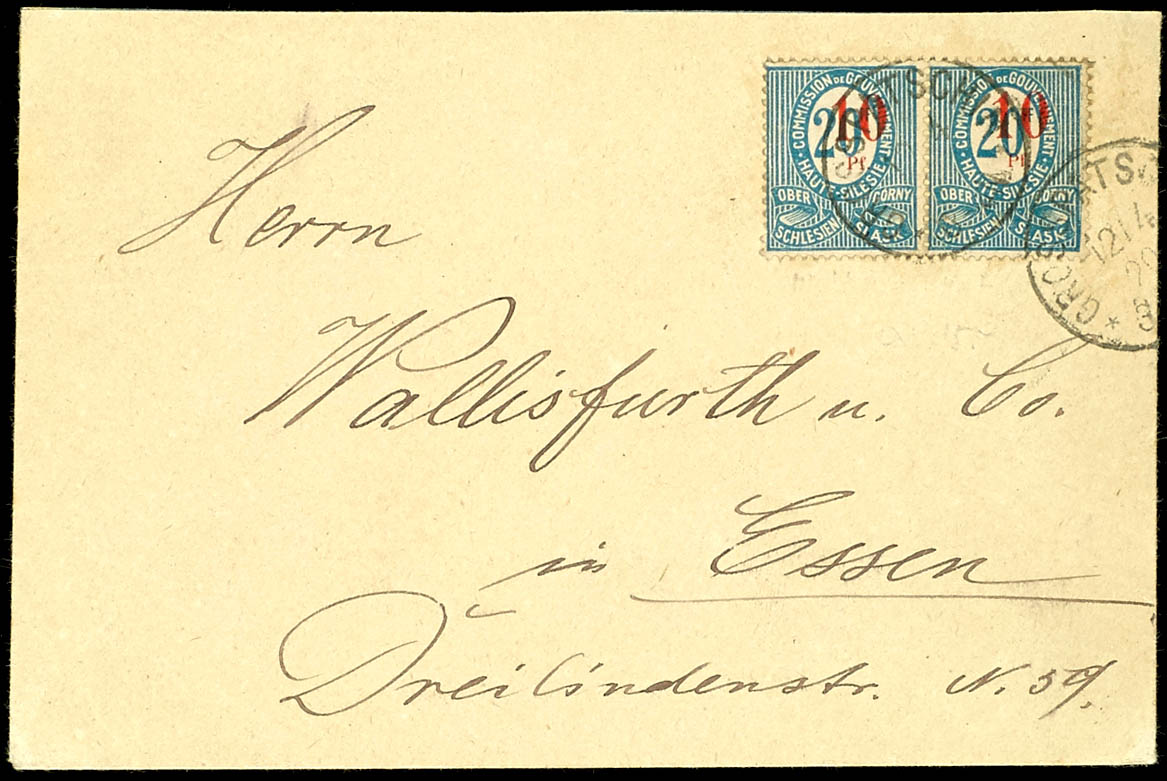 COMMISSION DE GOUVERNEMENT
HAUTE·SILESIE
20
10
Pf
OBER SCHLESIEN
GORNY ŚLĄSK
COMMISSION DE GOUVERNEMENT
HAUTE·SILESIE
20
10
Pf
OBER SCHLESIEN
GORNY ŚLĄSK
Herrn
Wallisfurth u. Co.
in Essen
Dreilindenstr. N. 59.